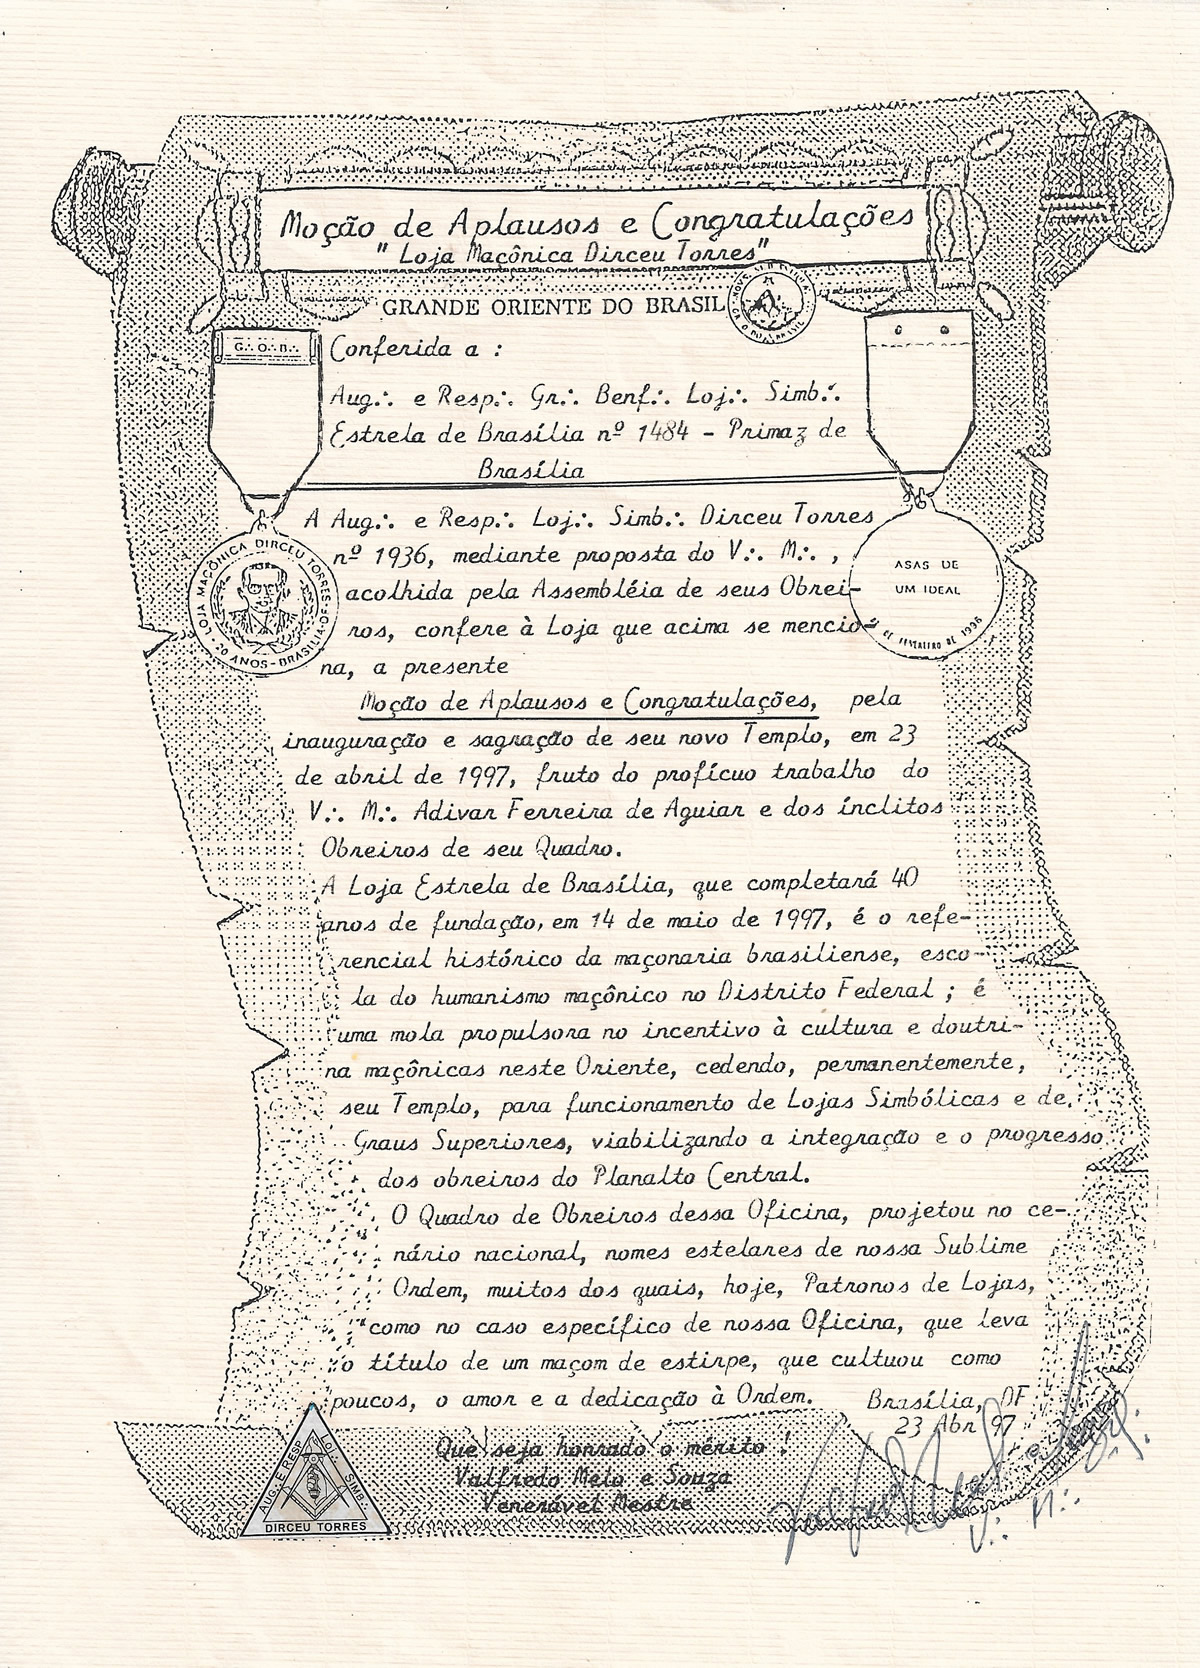 Moção de Aplausos e Congratulações
" Loja Maçônica Dirceu Torres"
GRANDE ORIENTE DO BRASIL
G∴ O∴ B∴
Conferida a :
Aug∴ e Resp∴ Gr∴ Benf∴ Loj∴ Simb∴
Estrela de Brasília nº 1484 - Primaz de
Brasília
A Aug∴ e Resp∴ Loj∴ Simb∴ Dirceu Torres
nº 1936, mediante proposta do V∴ M∴ ,
acolhida pela Assembléia de seus Obrei-
ros, confere à Loja que acima se mencio-
na, a presente
LOJA MAÇÔNICA DIRCEU TORRES
20 ANOS - BRASÍLIA
ASAS DE
UM IDEAL
DE FEVEREIRO DE 1996
Moção de Aplausos e Congratulações, pela
inauguração e sagração de seu novo Templo, em 23
de abril de 1997, fruto do profícuo trabalho do
V∴ M∴ Adivar Ferreira de Aguiar e dos ínclitos
Obreiros de seu Quadro.
A Loja Estrela de Brasília, que completará 40
anos de fundação, em 14 de maio de 1997, é o refe-
rencial histórico da maçonaria brasiliense, esco-
la do humanismo maçônico no Distrito Federal ; é
uma mola propulsora no incentivo à cultura e doutri-
na maçônicas neste Oriente, cedendo, permanentemente,
seu Templo, para funcionamento de Lojas Simbólicas e de
Graus Superiores, viabilizando a integração e o progresso
dos obreiros do Planalto Central.
O Quadro de Obreiros dessa Oficina, projetou no ce-
nário nacional, nomes estelares de nossa Sublime
Ordem, muitos dos quais, hoje, Patronos de Lojas,
como no caso específico de nossa Oficina, que leva
o título de um maçom de estirpe, que cultuou como
poucos, o amor e a dedicação à Ordem.
Brasília, DF
23 Abr 97
Que seja honrado o mérito !
Valfredo Melo e Souza
Venerável Mestre
AUG. E RESP. LOJ. SIMB.
DIRCEU TORRES
V∴ M∴